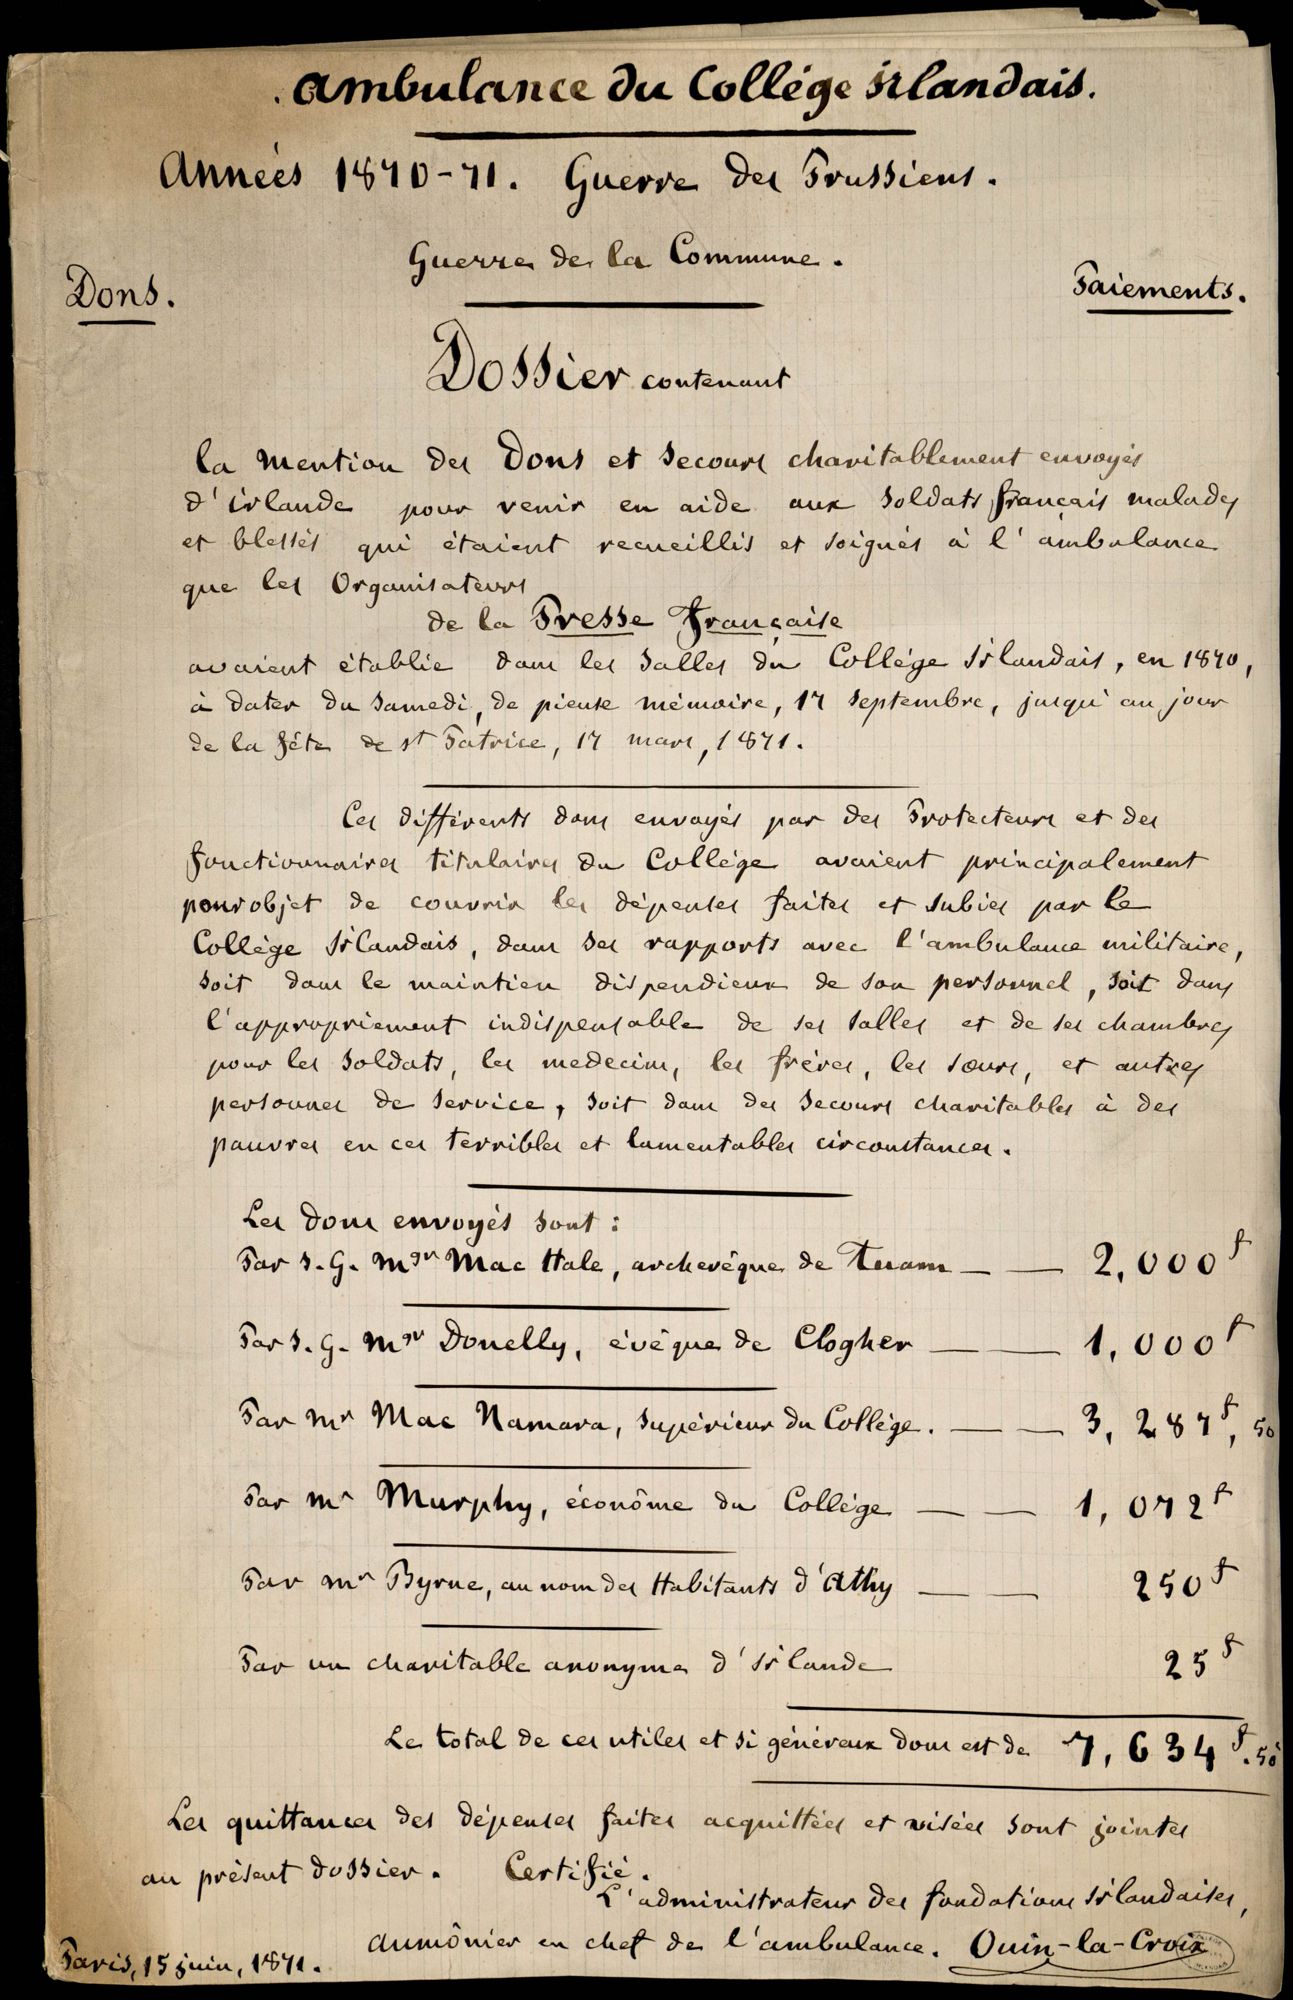 Ambulance du Collége Irlandais.
Années 1870-71. Guerre des Prussiens.
Guerre de la Commune.
Dons.
Paiements.
Dossier contenant
la mention des Dons et secours charitablement envoyés
d'irlande pour venir en aide aux soldats français malades
et blessés qui étaient recueillis et soignés à l'ambulance
que les Organisateurs
de la Presse Française
avaient établie dans les salles du Collége Irlandais, en 1870,
à dater du samedi, de pieuse mémoire, 17 septembre, jusqu'au jour
de la fête de st Patrice, 17 mars, 1871.
Ces différents dons envoyés par des Protecteurs et des
fonctionnaires titulaires du Collége avaient principalement
pour objet de couvrir les dépenses faites et subies par le
Collége Irlandais, dans ses rapports avec l'ambulance militaire,
soit dans le maintien dispendieux de son personnel, soit dans
l'appropriement indispensable de ses salles et de ses chambres
pour les soldats, les medecins, les frères, les sœurs, et autres
personnes de service, soit dans des secours charitables à des
pauvres en ces terribles et lamentables circonstances.
Les dons envoyés sont :
Par S. G. Mgr Mac Hale, archevêque de Tuam — — 2,000f
Par S. G. Mgr Donelly, évêque de Clogher — — 1,000f
Par Mr Mac Namara, supérieur du Collége. — — 3,287f,50
Par Mr Murphy, éconôme du Collége — — 1,072f
Par Mr Byrne, au nom des Habitants d'Athy — — 250f
Par un charitable anonyme d'Irlande 25f
Le total de ces utiles et si généreux dons est de 7,634f.50
Les quittances des dépenses faites acquittées et visées sont jointes
au présent dossier. Certifié.
L'administrateur des fondations Irlandaises,
aumônier en chef de l'ambulance. Ouin-la-Croix
Paris, 15 juin, 1871.